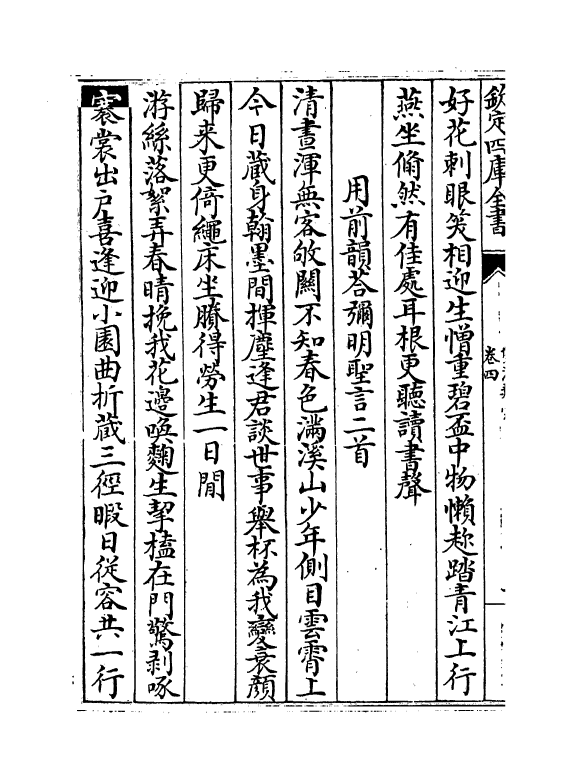 欽定四庫全書
卷四
好花刺眼笑相迎生憎重碧盃中物懶趂踏青江上行
燕坐翛然有佳處耳根更聽讀書聲
用前韻荅彌明聖言二首
清晝渾無客欵關不知春色滿溪山少年側目雲霄上
今日藏身翰墨間揮麈逢君談世事舉杯為我變衰顔
歸来更倚繩床坐賸得勞生一日閒
游絲落絮弄春晴挽我花邊喚麴生挈榼在門驚剥啄
褰裳出戸喜逢迎小園曲折蔵三徑暇日從容共一行